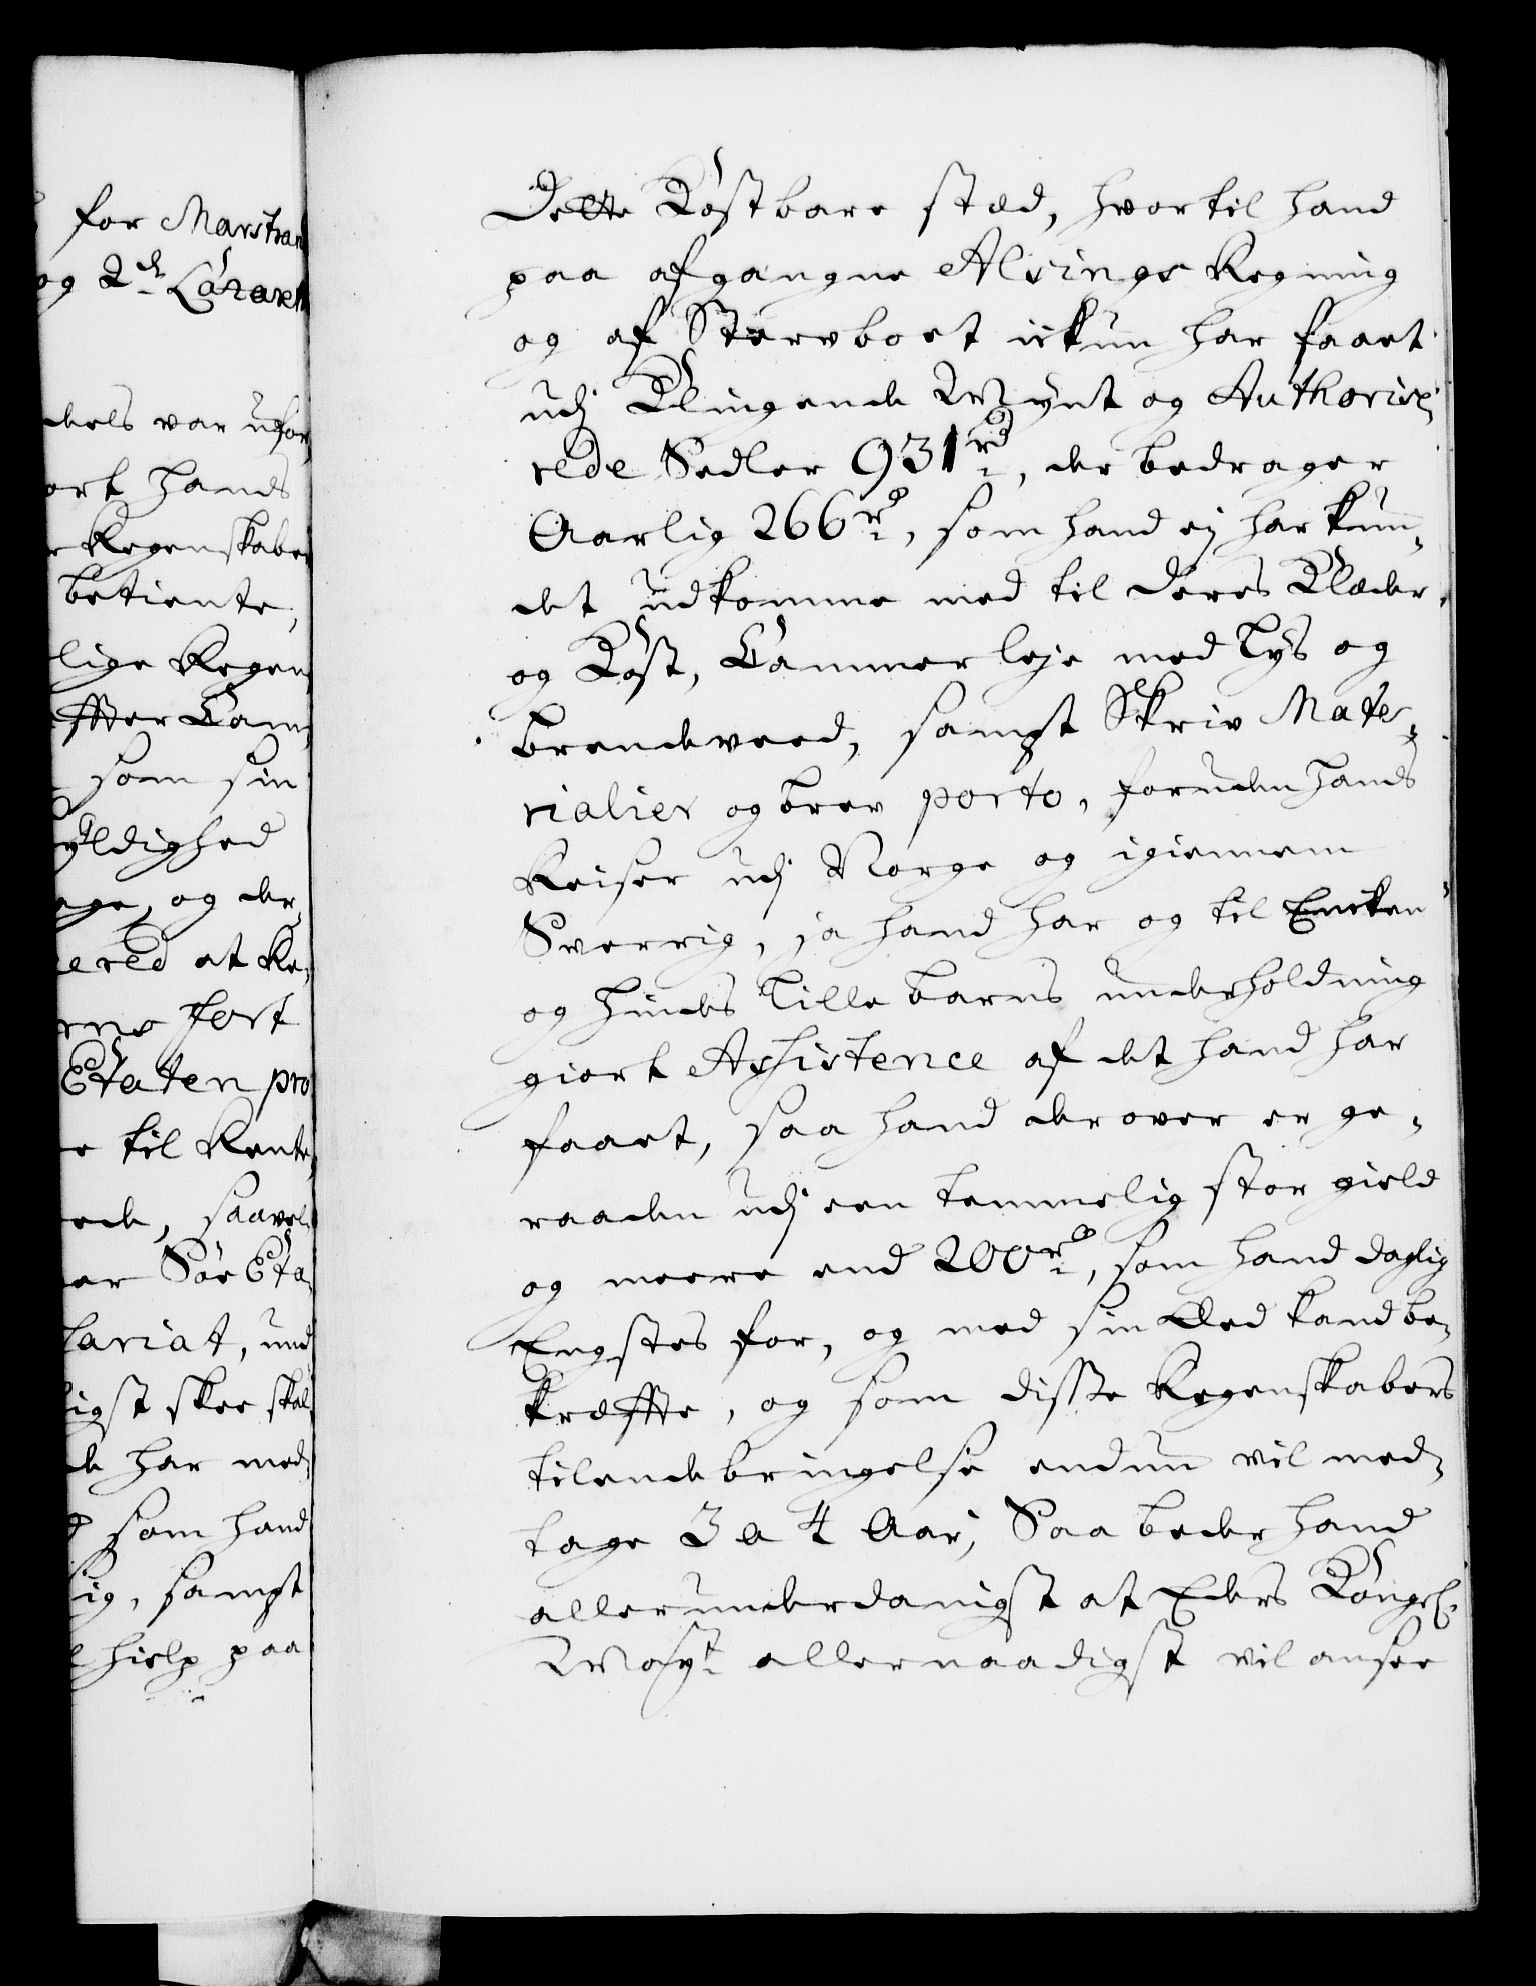 for Marstran
og 2de Lazaret
dels var ufor
ort hands
r Regenskaber
betiente,
lige Regen
effter Cam
som sin
yldighed
age, og der
ered at Re
rne fort
Etaten pro
e til Rente
ede, saavel
er Söe Eta
lariat, und
igst skee skal
de har med
som hand
ig, sampt
hielp paa
Dette Kostbare stæd, hvortil hand
paa afgangne Alsings Regning
og af Stervboet ickun har faaet
udj Klingende Mynt og Authorise
rede Sedler 931 rd, der bedrager
Aarlig 266 rd, som hand ej har kun,
det udkomme med til deres Klæder
og Kost, Cammerleje med Lys og
brendeveed, sampt Skriv Mate,
rialier og brev porto, foruden hands
Reiser udj Norge og igiennem
Sverrig, ja hand har og til Encken
og hindes lille barns underholdning
giort Assistence af det hand har
faaet, saa hand derover er ge,
raaden udj een temmelig stor gield
og meere end 200 rd, som hand daglig
Engstes for, og med sin Eed kand be,
kræffte, og som disse Regenskabers
tilendebringelse endnu vil med,
tage 3 a 4 Aar, Saa beder hand
allerunderdanigst at Eders Kongel.
Mayt allernaadigst vil ansee